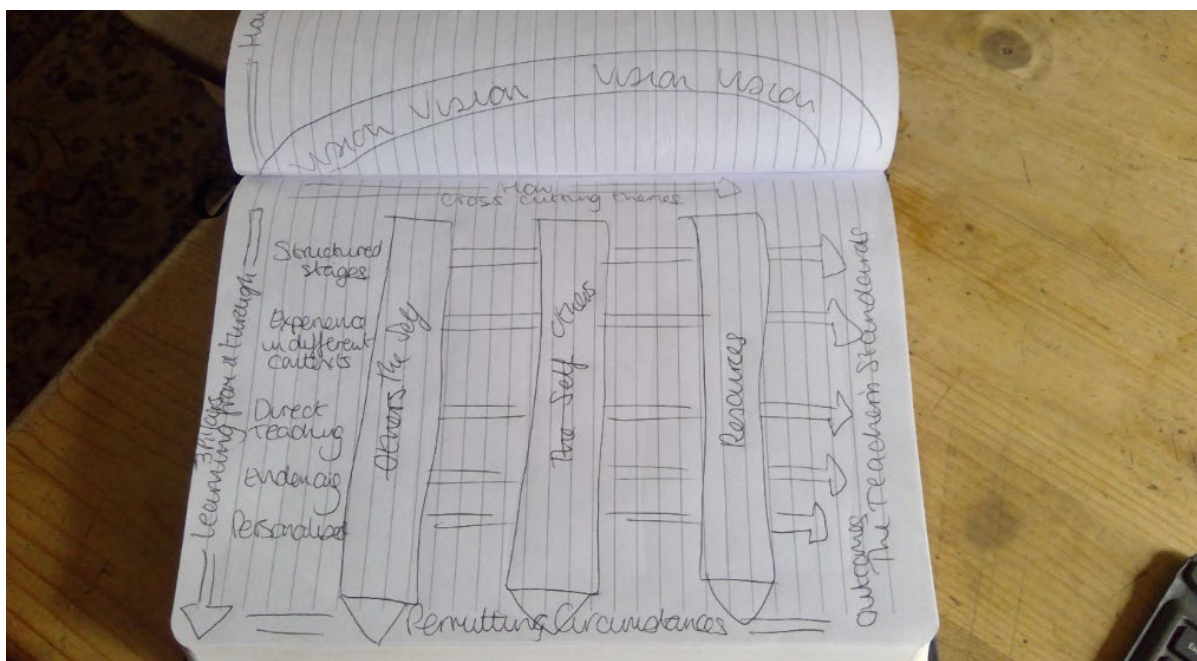 How
Vision Vision Vision Vision
How
Cross cutting themes
3 Pillars
Learning from & through
Structured
stages
Experience
in different
contexts
Direct
Teaching
Evidencing
Personalised
Others The Self
The Self Others
Resources
Outcomes
The Teachers Standards
Permitting Circumstances